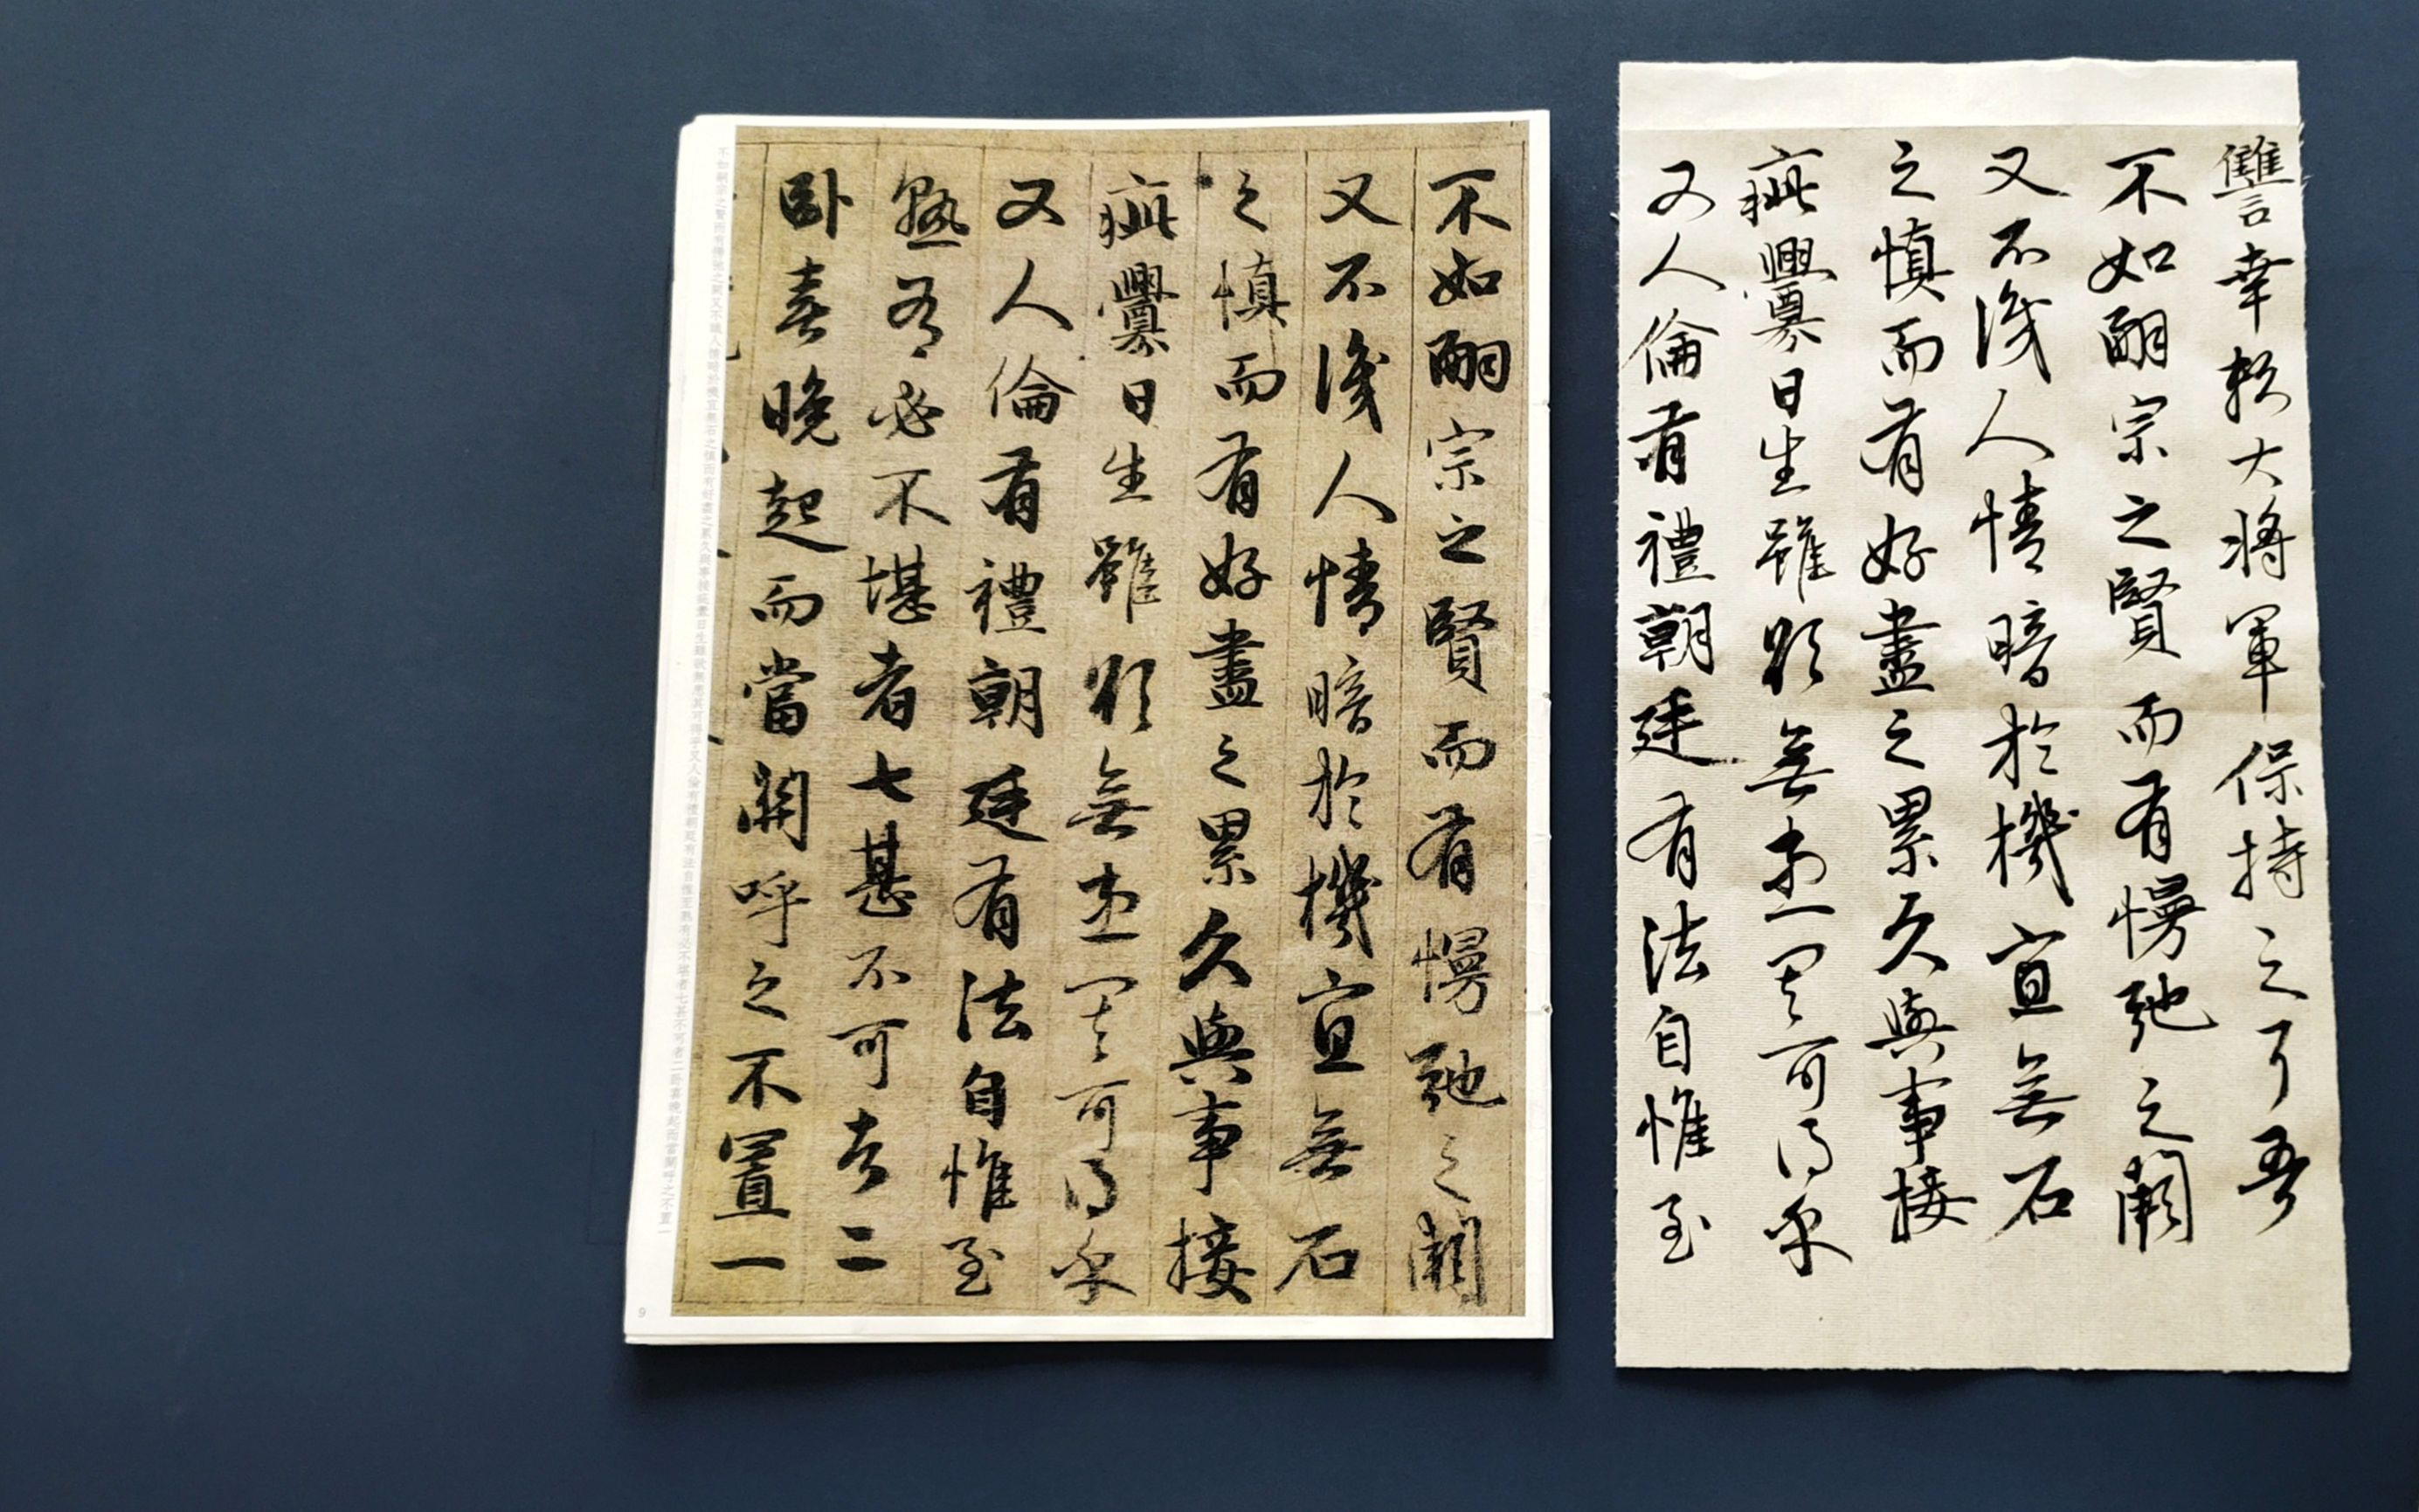 讎幸賴大將軍保持之耳吾
不如嗣宗之賢而有慢弛之闕
又不識人情暗於機宜無石
之慎而有好盡之累久與事接
疵釁日生雖欲無患其可得乎
又人倫有禮朝廷有法自惟至
不如嗣宗之賢而有慢弛之闕
又不識人情暗於機宜無石
之慎而有好盡之累久與事接
疵釁日生雖欲無患其可得乎
又人倫有禮朝廷有法自惟至
熟有必不堪者七甚不可者二
臥喜晚起而當關呼之不置一
不如嗣宗之賢而有慢弛之闕又不識人情暗於機宜無石之慎而有好盡之累久與事接疵釁日生雖欲無患其可得乎又人倫有禮朝廷有法自惟至熟有必不堪者七甚不可者二臥喜晚起而當關呼之不置一
9